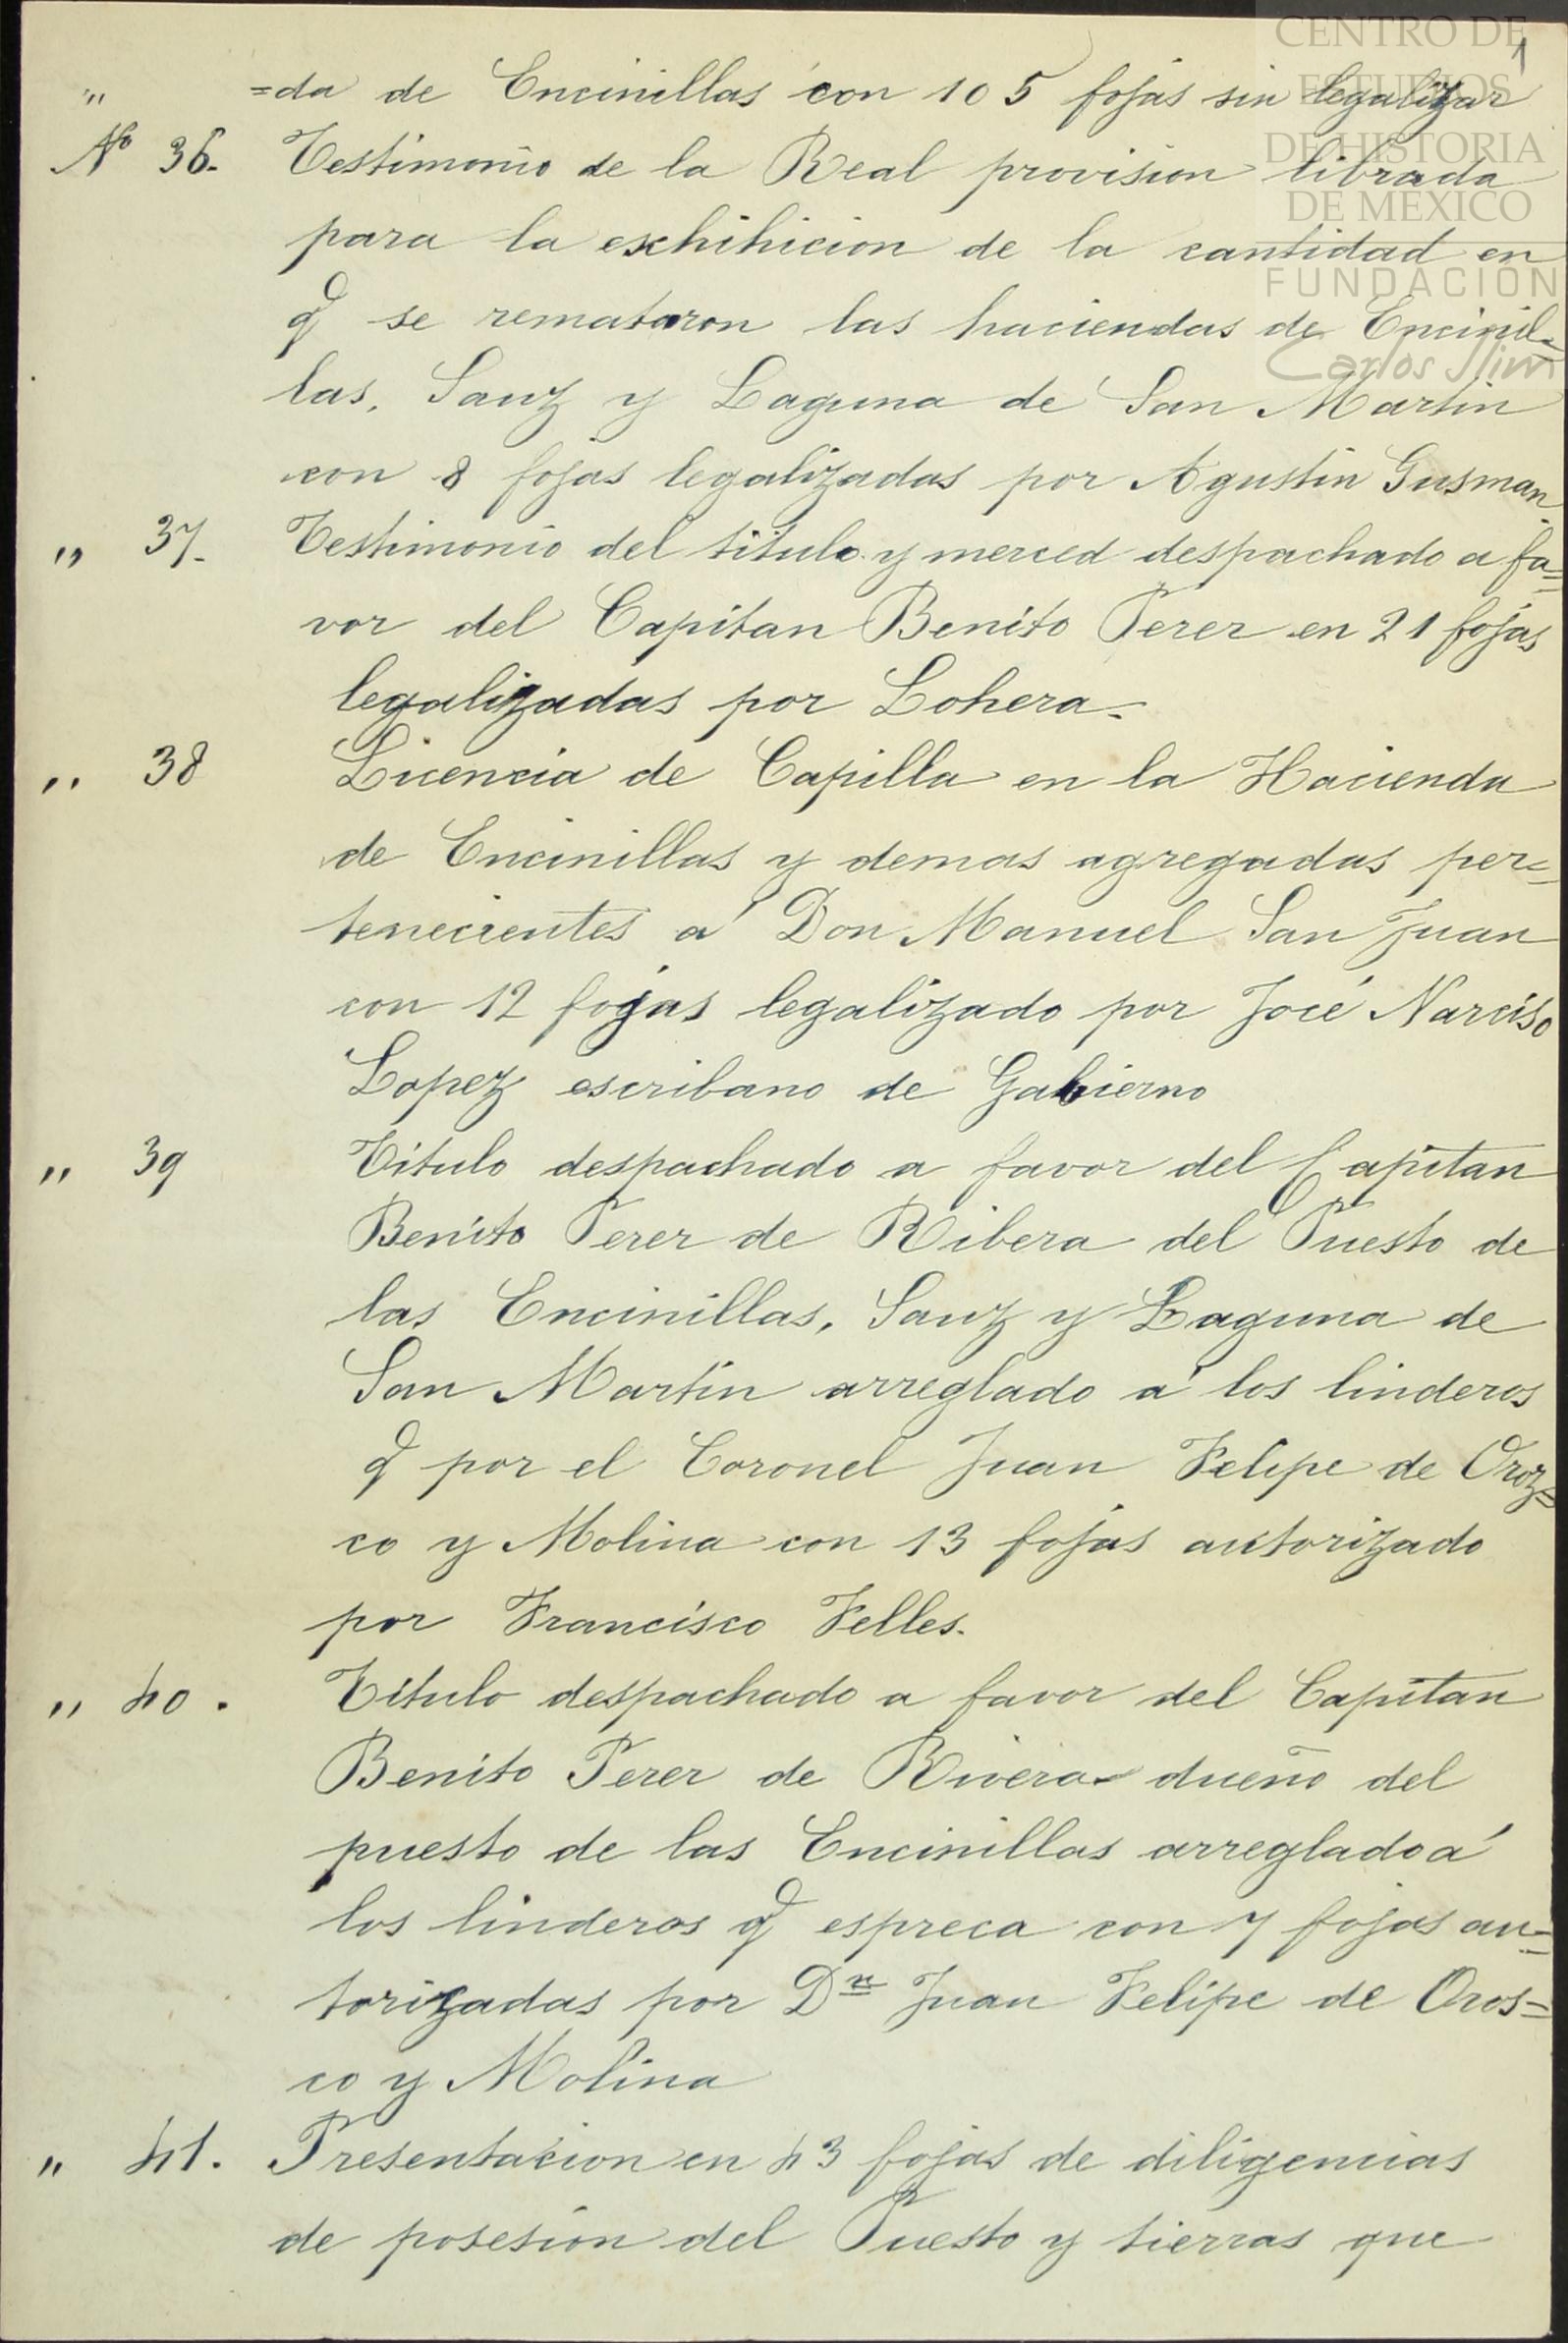 CENTRO DE
ESTUDIOS
DE HISTORIA
DE MEXICO
FUNDACIÓN
Carlos Slim
1
" =da de Encinillas con 105 fojas sin legalizar
No 36. Testimonio de la Real provision librada
para la exhihicion de la cantidad en
q se remataron las haciendas de Encinil-
las, Sauz y Laguna de San Martin
con 8 fojas legalizadas por Agustin Gusman
" 37. Testimonio del titulo y merced despachado a fa=
vor del Capitan Benito Perer en 21 fojas
legalizadas por Lohera.
" 38 Licencia de Capilla en la Hacienda
de Encinillas y demas agregadas per=
tenecientes a' Don Manuel San Juan
con 12 fojas legalizado por Jocé Narciso
Lopez escribano de Gabierno
" 39 Titulo despachado a favor del Capitan
Benito Perer de Ribera del Puesto de
las Encinillas, Sauz y Laguna de
San Martin arreglado á los linderos
q por el Coronel Juan Felipe de Oroz=
co y Molina con 13 fojas autorizado
por Francisco Felles.
" 40. Titulo despachado a favor del Capitan
Benito Perer de Rivera dueño del
puesto de las Encinillas arreglado á
los linderos q espreca con 7 fojas au=
torizadas por Dn Juan Felipe de Oros=
co y Molina
" 41. Presentacion en 43 fojas de diligencias
de posesion del Puesto y tierras que